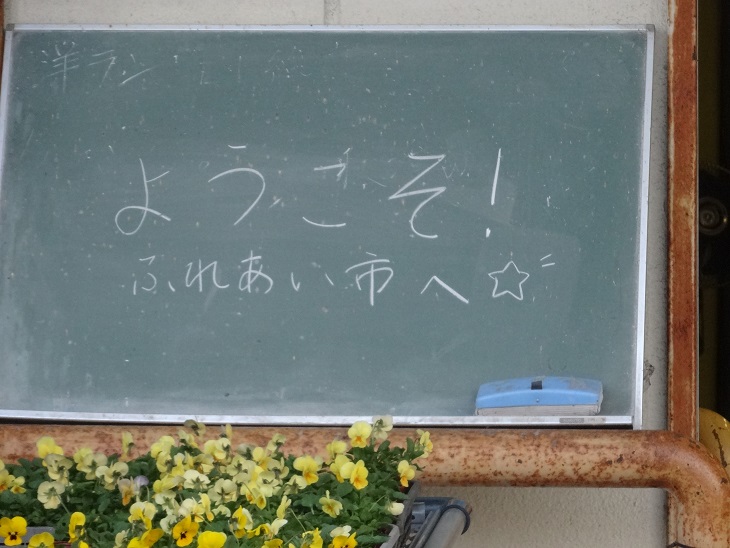 洋ラン
ようこそ!
ふれあい市へ☆